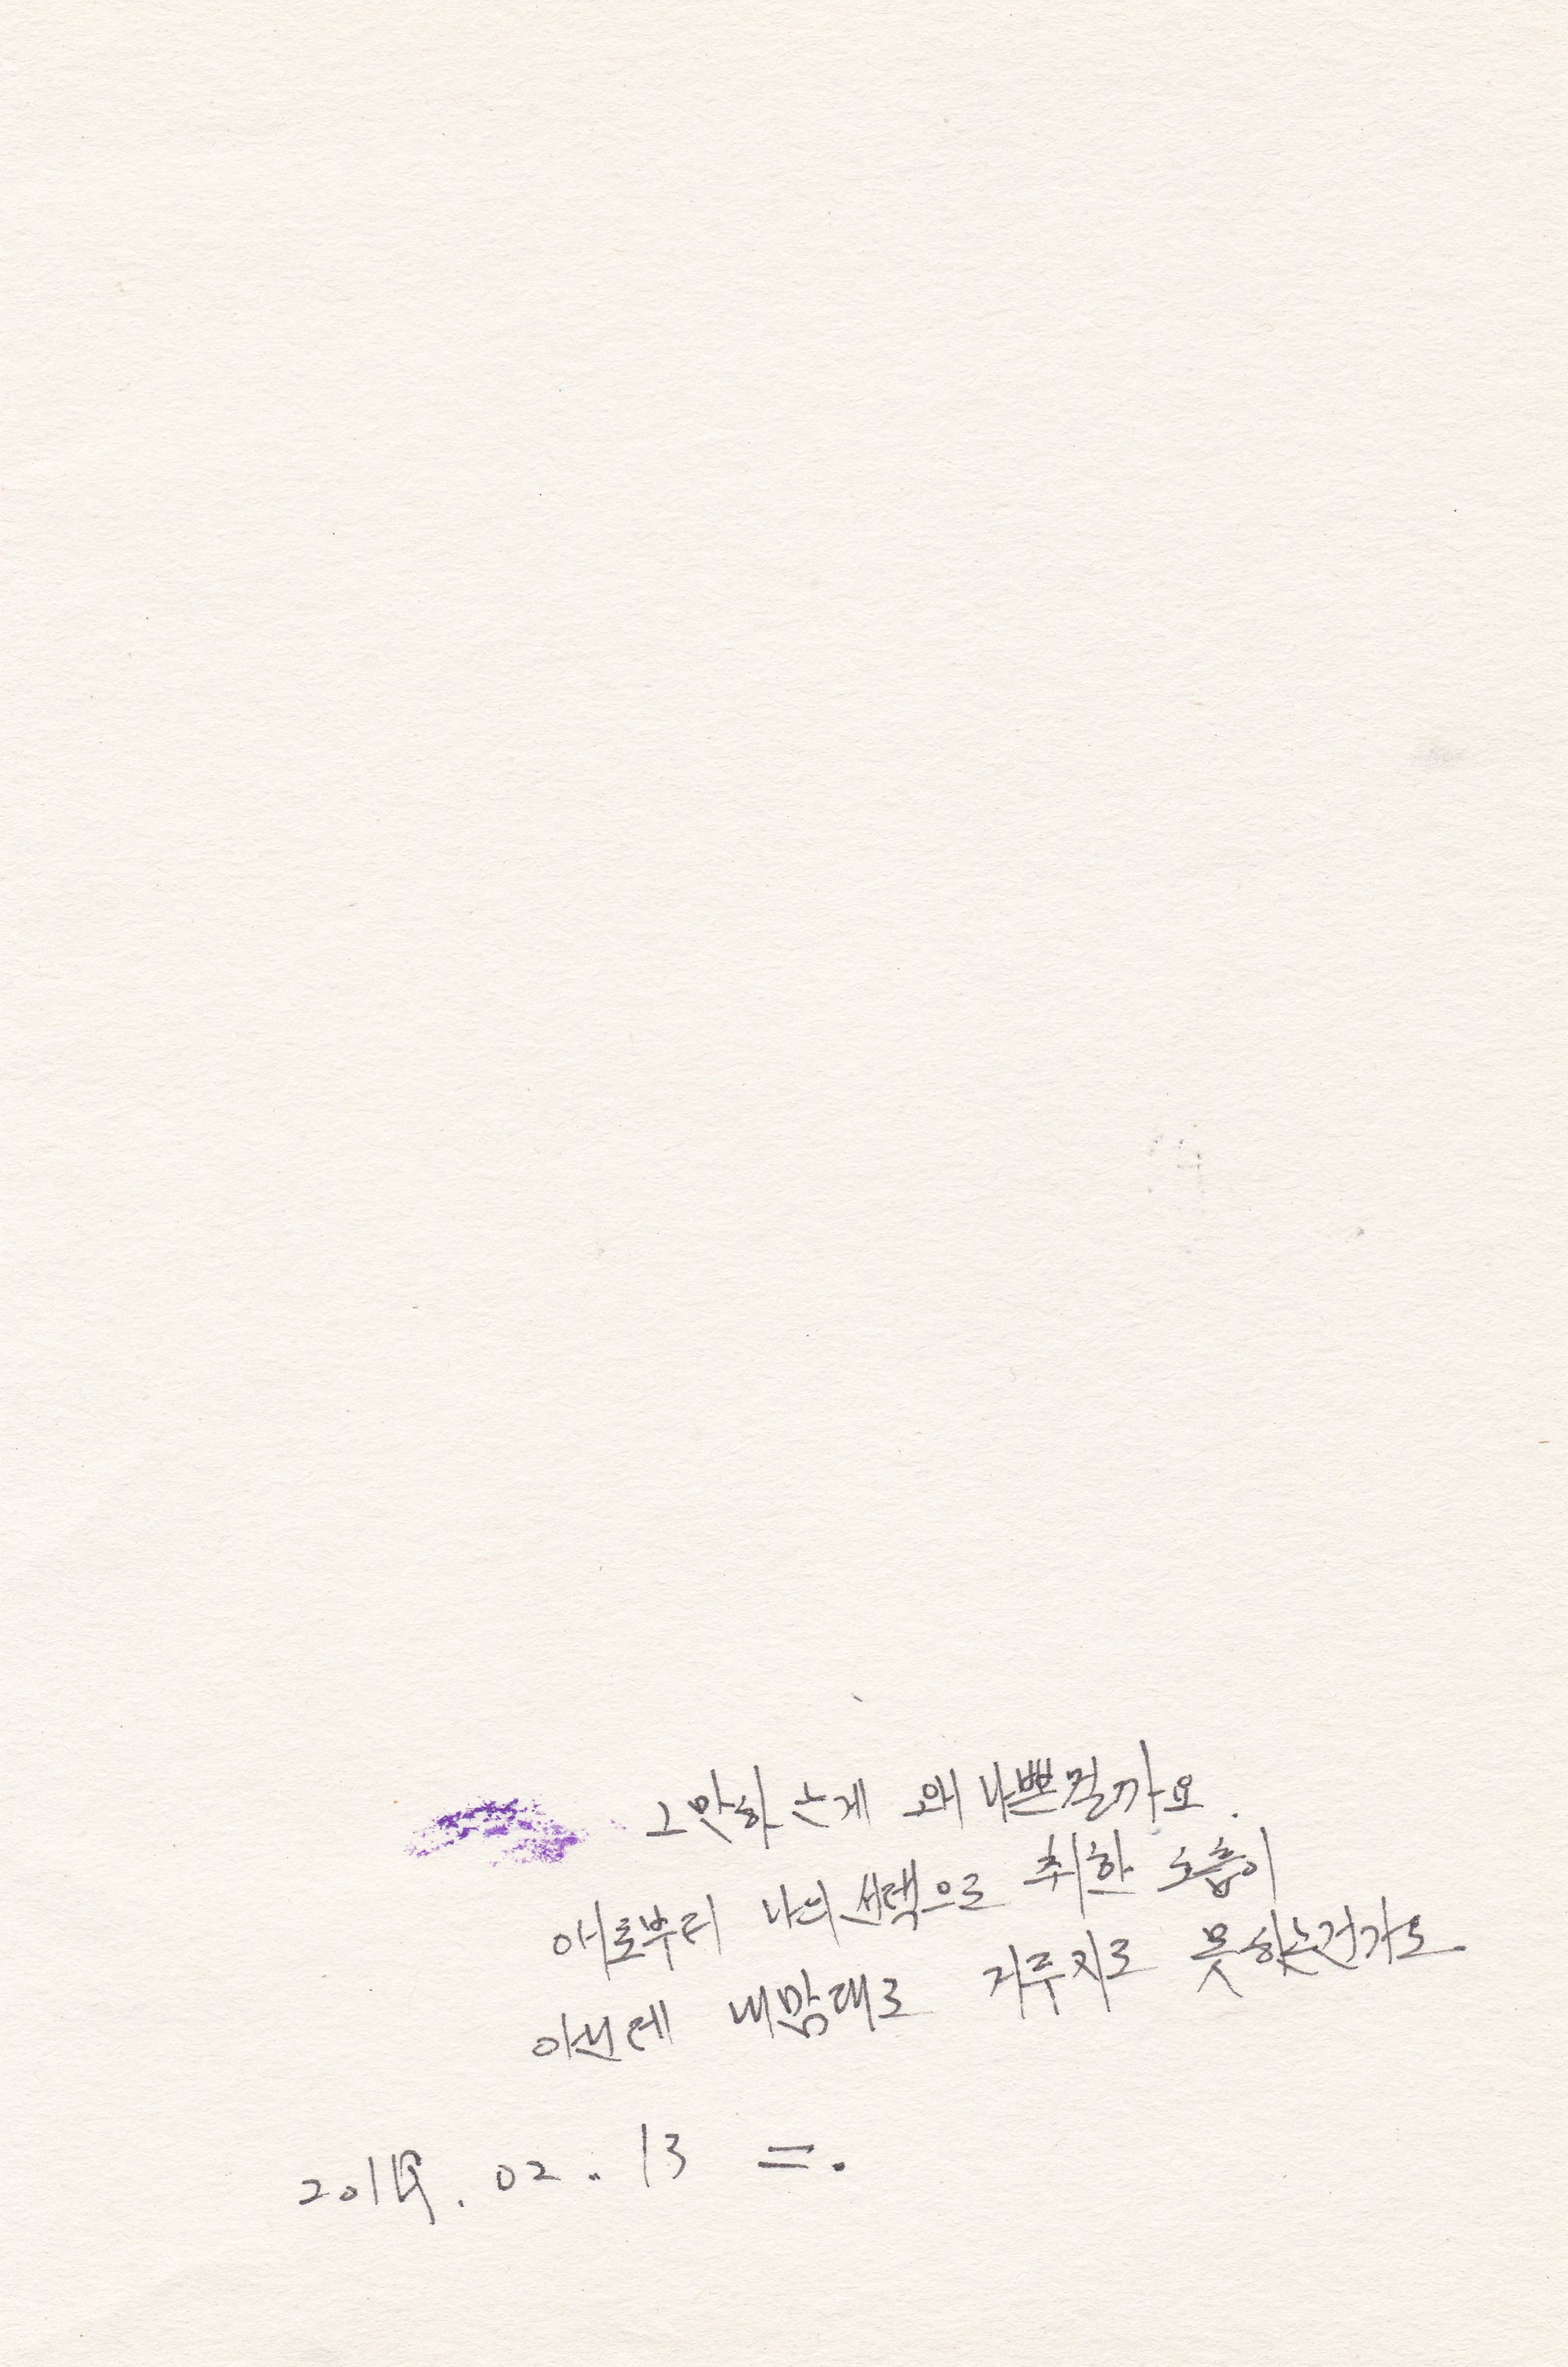 그만하는게 왜 나쁜걸까요.
애로부터 나의 선택으로 취한 호흡이
아닌데 내맘대로 거두지도 못하는건가요.
2019. 02. 13 =.